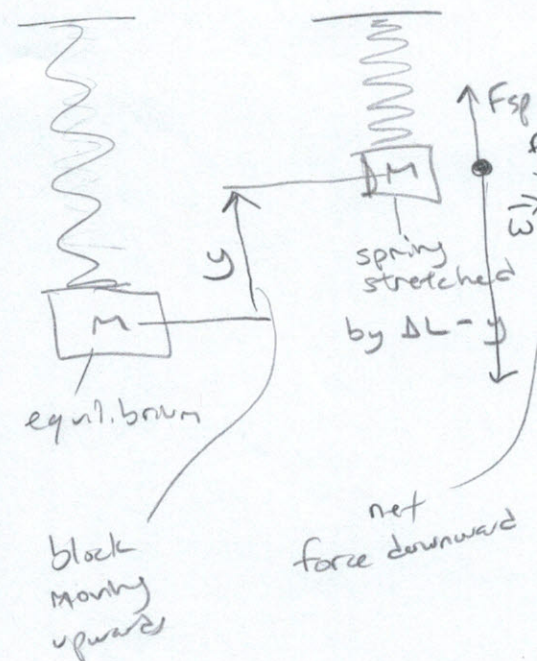 M
equilibrium
y
block
moving
upwards
M
spring
stretched
by ΔL - y
Fsp
net
force downward